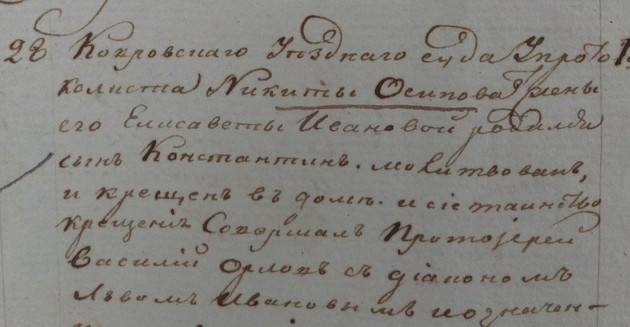 28 Ковровскаго Уѣзднаго суда У прото
колиста Никиты Осипова жены
его Елисаветы Ивановой родился
сынъ Константинъ. молитвованъ,
и крещенъ въ домѣ. и сіе таинство
крещенія Совершалъ Протоіерей
Василій Орловъ съ діакономъ
Львомъ Ивановымъ и означен-